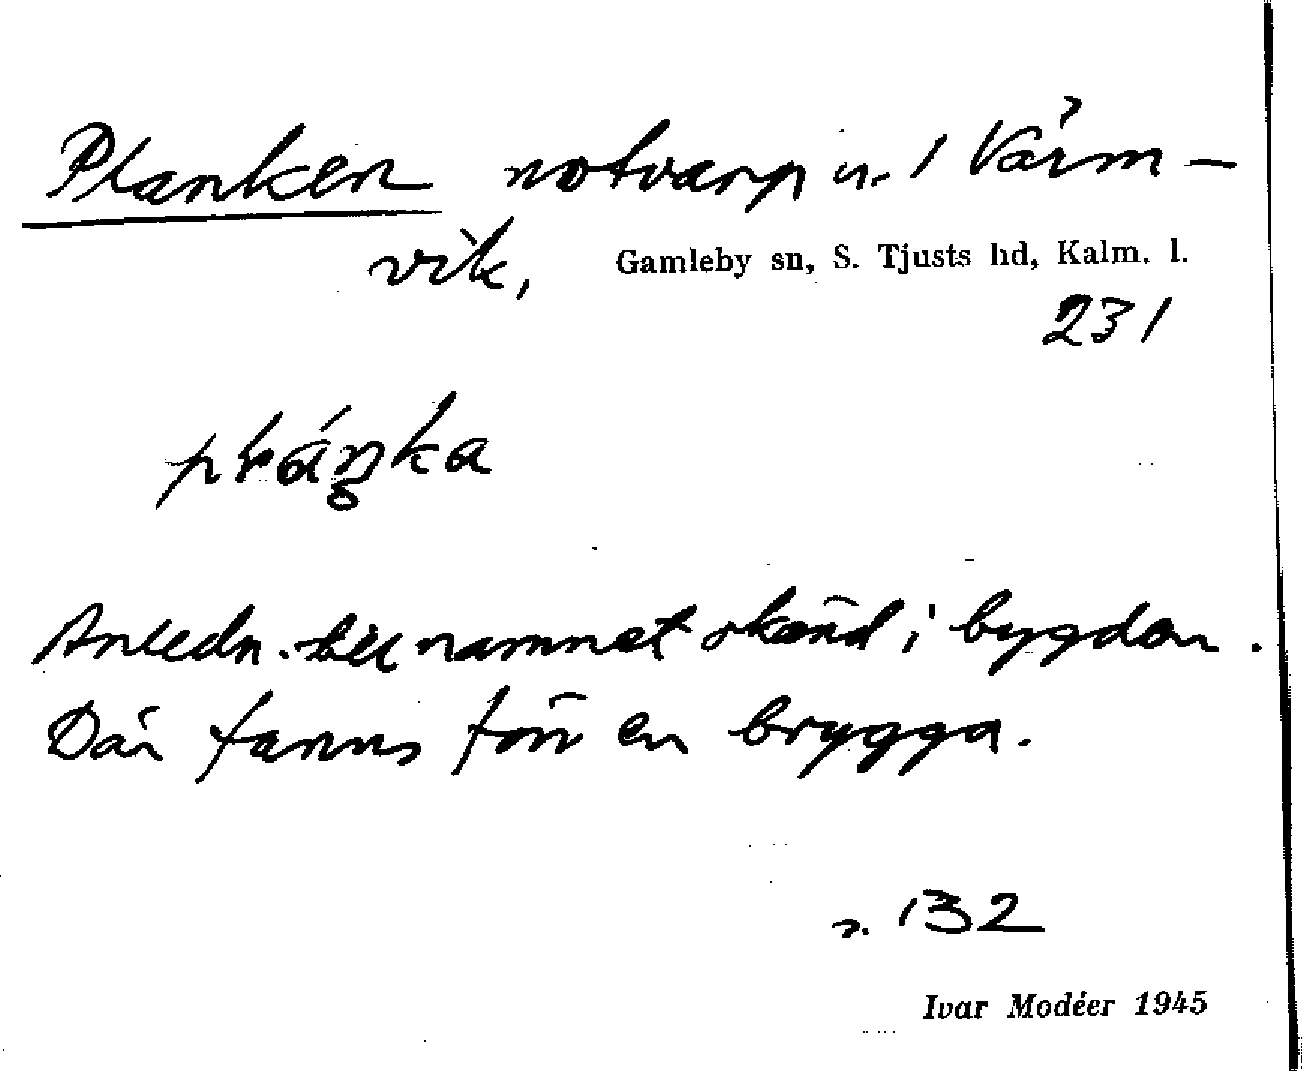 Planken notvarp u. 1 Värm-
vik, Gamleby sn, S. Tjusts hd, Kalm. l.
231
pláŋka
Anledn. till namnet okänd i bygden.
Där fanns förr en brygga.
s. 132
Ivar Modéer 1945